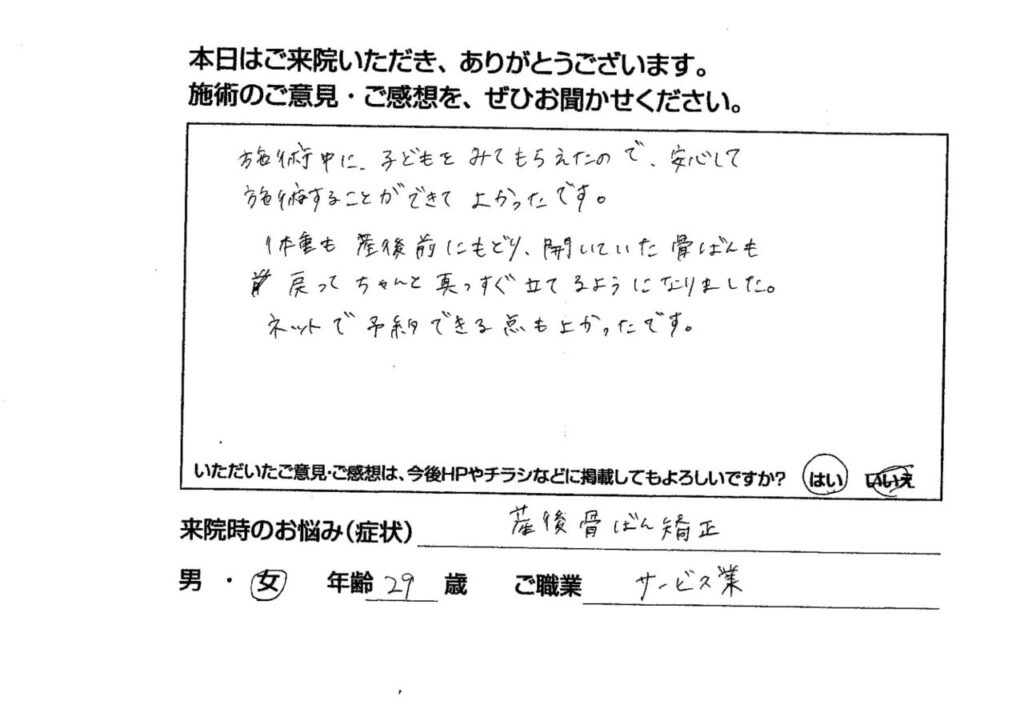 本日はご来院いただき、ありがとうございます。
施術のご意見・ご感想を、ぜひお聞かせください。
施術中に、子どもをみてもらえたので、安心して
施術することができてよかったです。
体重も産後前にもどり、開いていた骨ばんも
戻ってちゃんと真っすぐ立てるようになりました。
ネットで予約できる点もよかったです。
いただいたご意見・ご感想は、今後HPやチラシなどに掲載してもよろしいですか? はい いいえ
来院時のお悩み(症状) 産後骨ばん矯正
男 ・ 女 年齢 29 歳 ご職業 サービス業